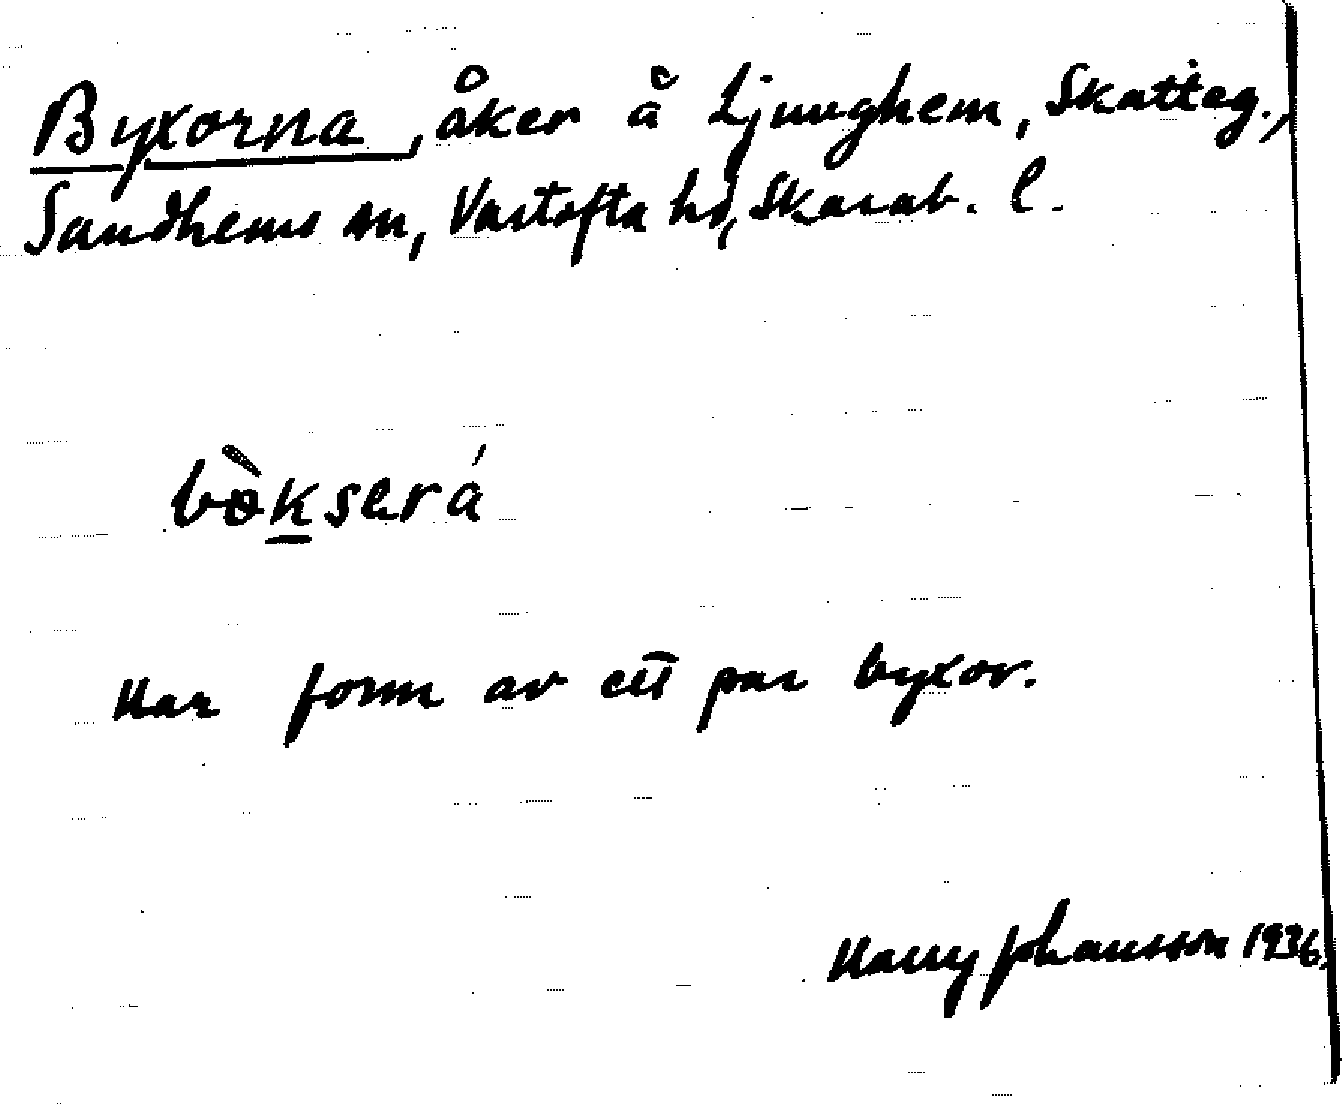 Byxorna, åker å Ljunghem, Skatteg.,
Sandhems sn, Vartofta hd, Skarab. l.
bòkserá
Har form av ett par byxor.
Harry Johansson 1936.